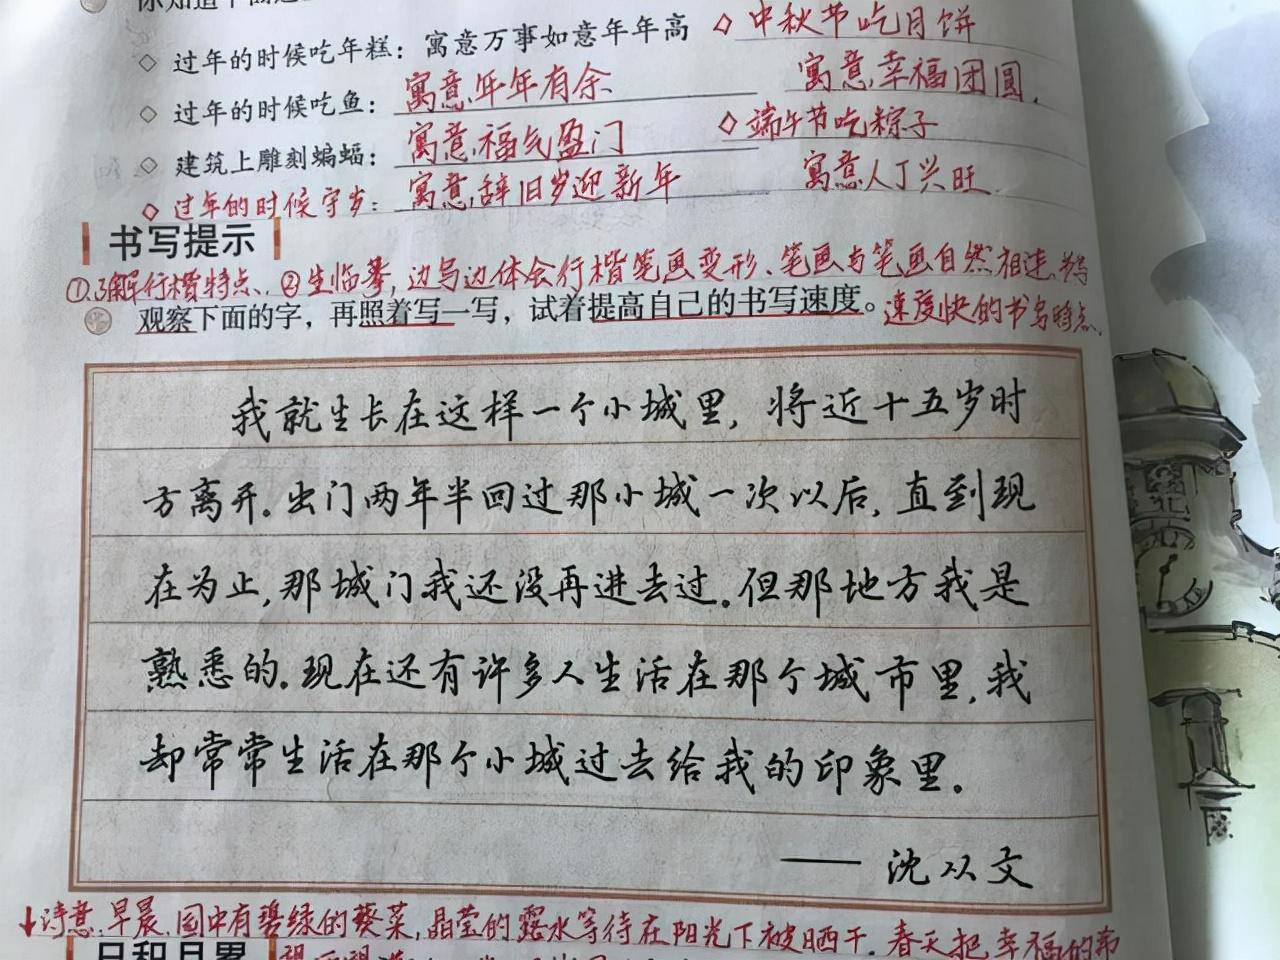 ◇ 过年的时候吃年糕：寓意万事如意年年高
◇ 过年的时候吃鱼：寓意，年年有余
◇ 建筑上雕刻蝙蝠：寓意，福气盈门
◇ 过年的时候守岁：寓意，辞旧岁迎新年
◇ 中秋节吃月饼
寓意，幸福团圆.
◇ 端午节吃粽子
寓意人丁兴旺
书写提示
①了解行楷特点、②生临摹，边写边体会行楷笔画变形、笔画与笔画自然相连、书写
速度快的书写特点、
观察下面的字，再照着写一写，试着提高自己的书写速度。
我就生长在这样一个小城里，将近十五岁时
方离开。出门两年半回过那小城一次以后，直到现
在为止，那城门我还没再进去过。但那地方我是
熟悉的。现在还有许多人生活在那个城市里，我
却常常生活在那个小城过去给我的印象里。
—— 沈从文
诗意，早晨，园中有碧绿的葵菜，晶莹的露水等待在阳光下被晒干。春天把幸福的希
日积月累